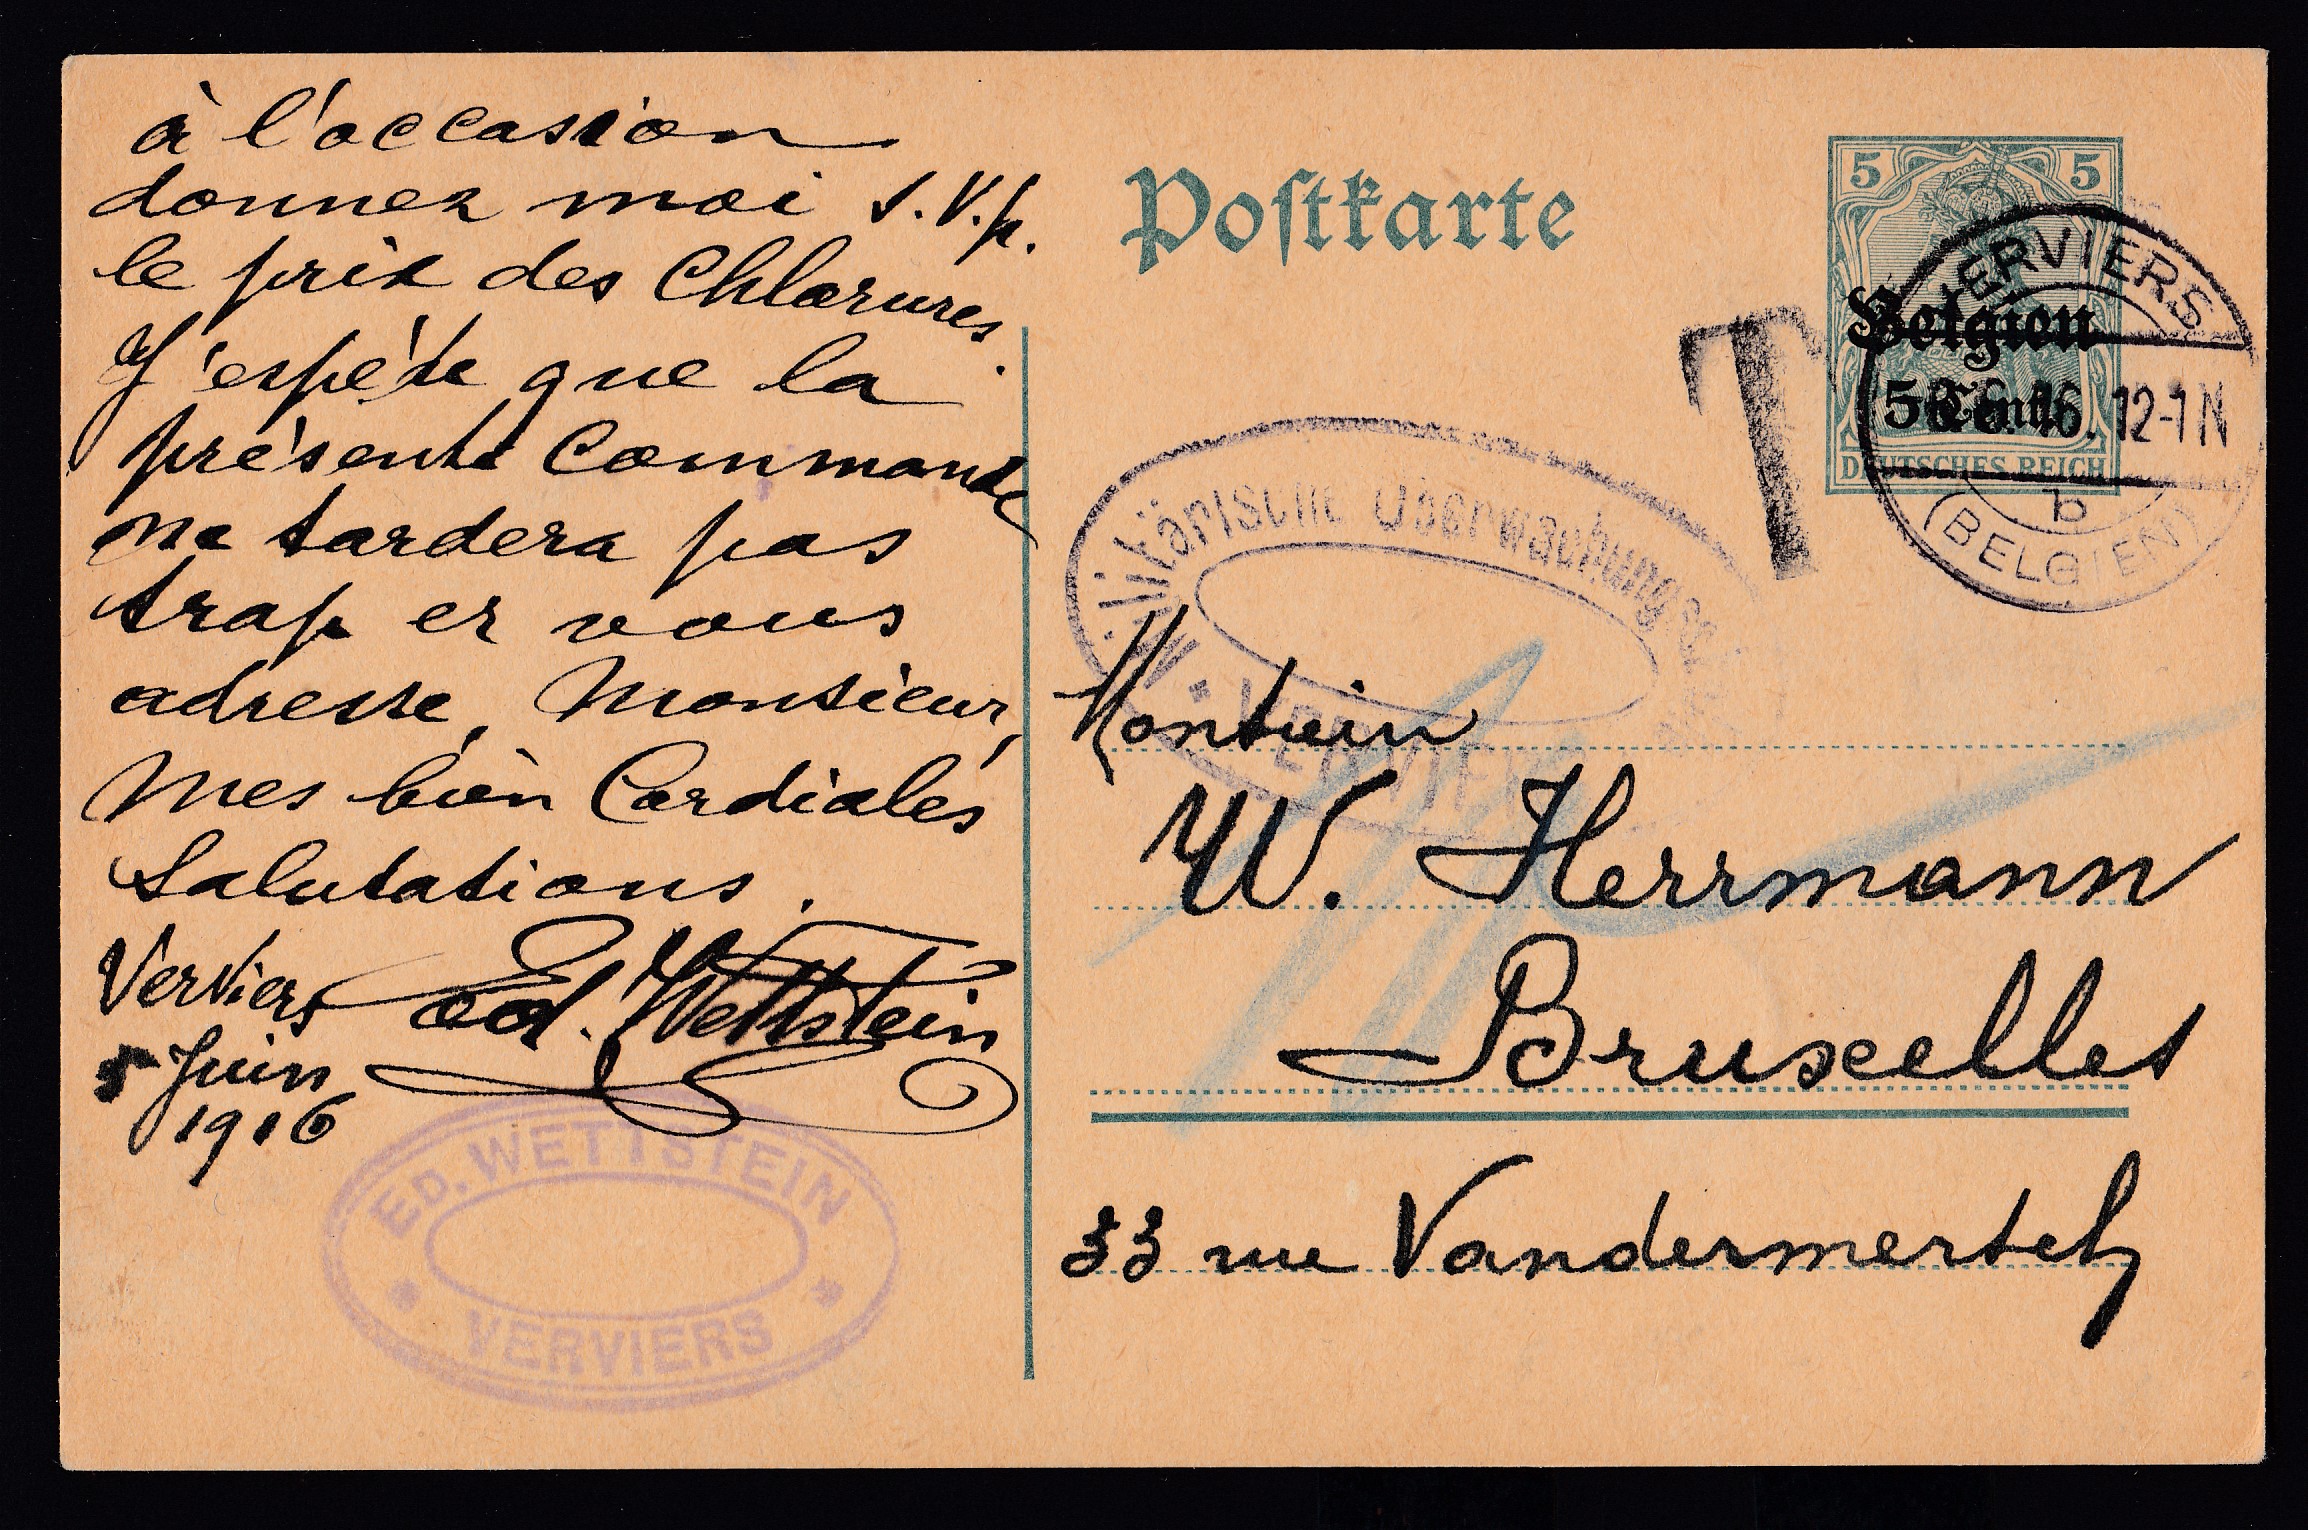 à l'occasion
donnez moi S.V.p.
le prix des Chlorures.
J'espère que la
présente Commande
ne tardera pas
trop et vous
adresse, Monsieur,
Mes bien Cordiales
Salutations.
Verviers Ed. Wettstein
5 Juin
1916
ED. WETTSTEIN
* *
VERVIERS
Postkarte
5 5
Belgien
5 Cent.
DEUTSCHES REICH
VERVIERS
6.16. 12-1N
b
(BELGIEN)
T
Militärische Überwachungs
VERVIERS
Monsieur
W. Herrmann
Bruxelles
33 rue Vandermersch